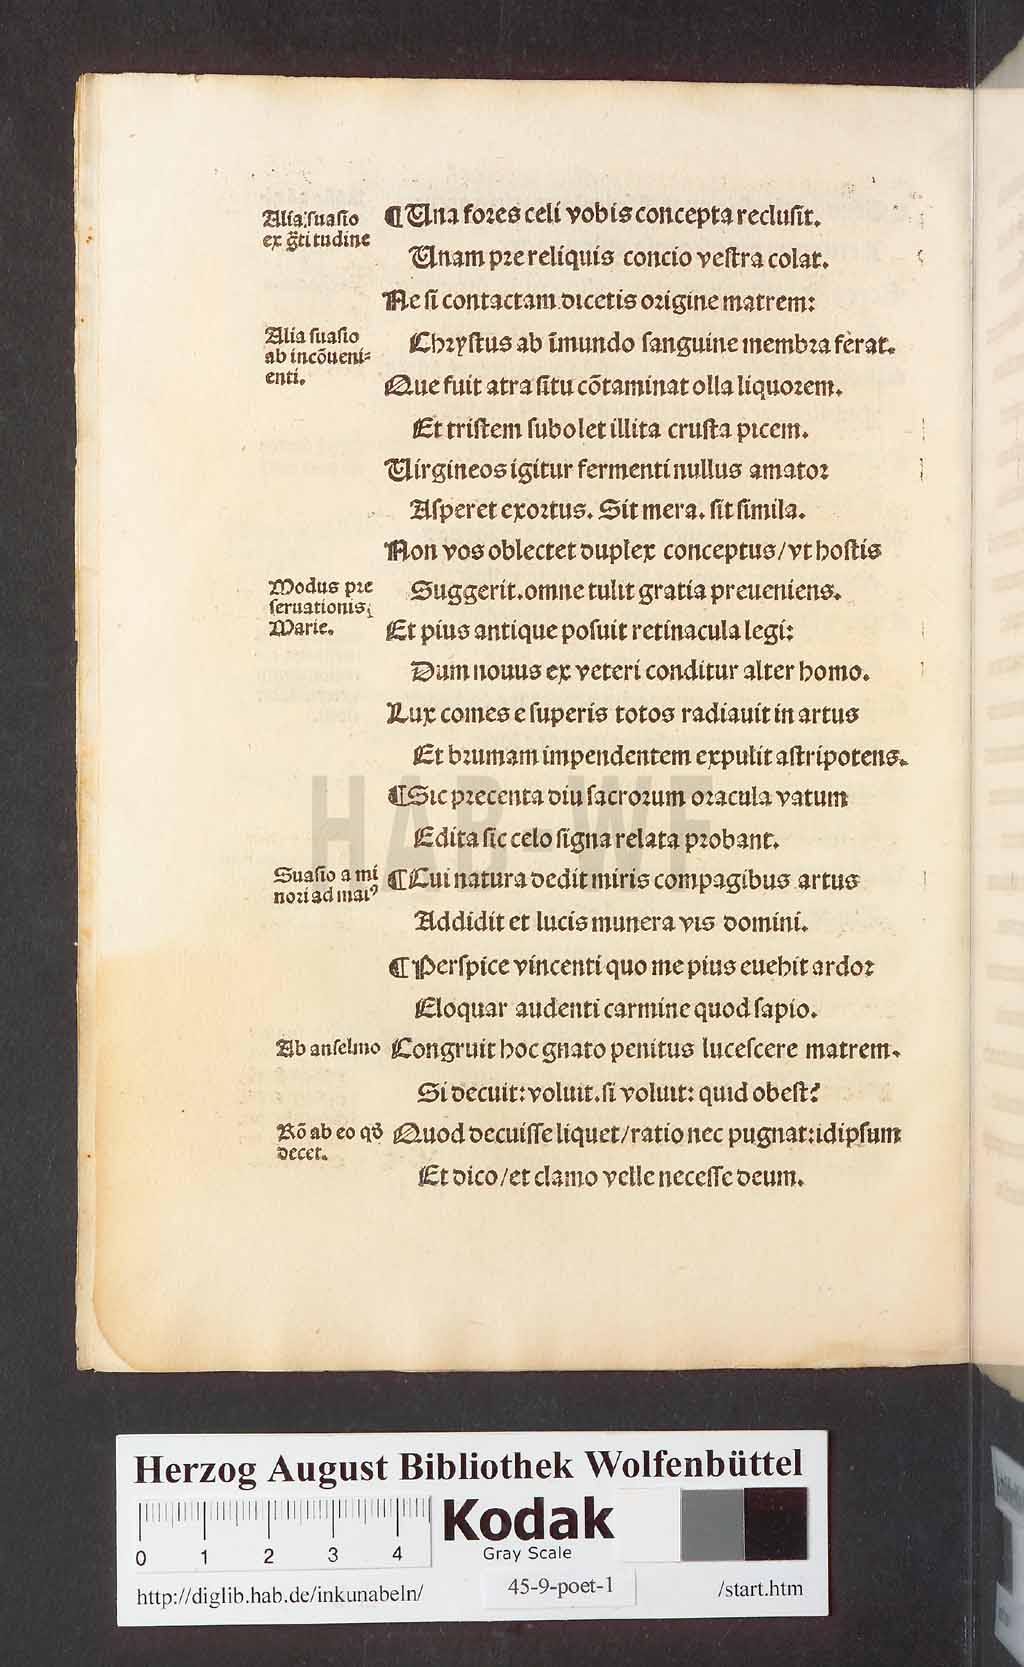 Alia suasio
ex gr̄titudine
¶ Una fores celi vobis concepta reclusit.
Unam pre reliquis concio vestra colat.
Ne si contactam dicetis origine matrem:
Alia suasio
ab incōueni-
enti.
Chrystus ab īmundo sanguine membra ferat.
Que fuit atra situ cōtaminat olla liquorem.
Et tristem subolet illita crusta picem.
Virgineos igitur fermenti nullus amator
Asperet exortus. Sit mera. sit simila.
Non vos oblectet duplex conceptus/vt hostis
Modus pre
seruationis
Marie.
Suggerit.omne tulit gratia preueniens.
Et pius antique posuit retinacula legi:
Dum nouus ex veteri conditur alter homo.
Lux comes e superis totos radiauit in artus
Et brumam impendentem expulit astripotens.
¶ Sic precenta diu sacrorum oracula vatum
Edita sic celo signa relata probant.
Suasio a mi
nori ad maiꝰ
¶ Cui natura dedit miris compagibus artus
Addidit et lucis munera vis domini.
¶ Perspice vincenti quo me pius euehit ardor
Eloquar audenti carmine quod sapio.
Ab anselmo
Congruit hoc gnato penitus lucescere matrem.
Si decuit:voluit.si voluit: quid obest?
Rō ab eo qđ
decet.
Quod decuisse liquet/ratio nec pugnat:idipsum
Et dico/et clamo velle necesse deum.
HAB-WF
Herzog August Bibliothek Wolfenbüttel
0 1 2 3 4
Kodak
Gray Scale
http://diglib.hab.de/inkunabeln/
45-9-poet-1
/start.htm